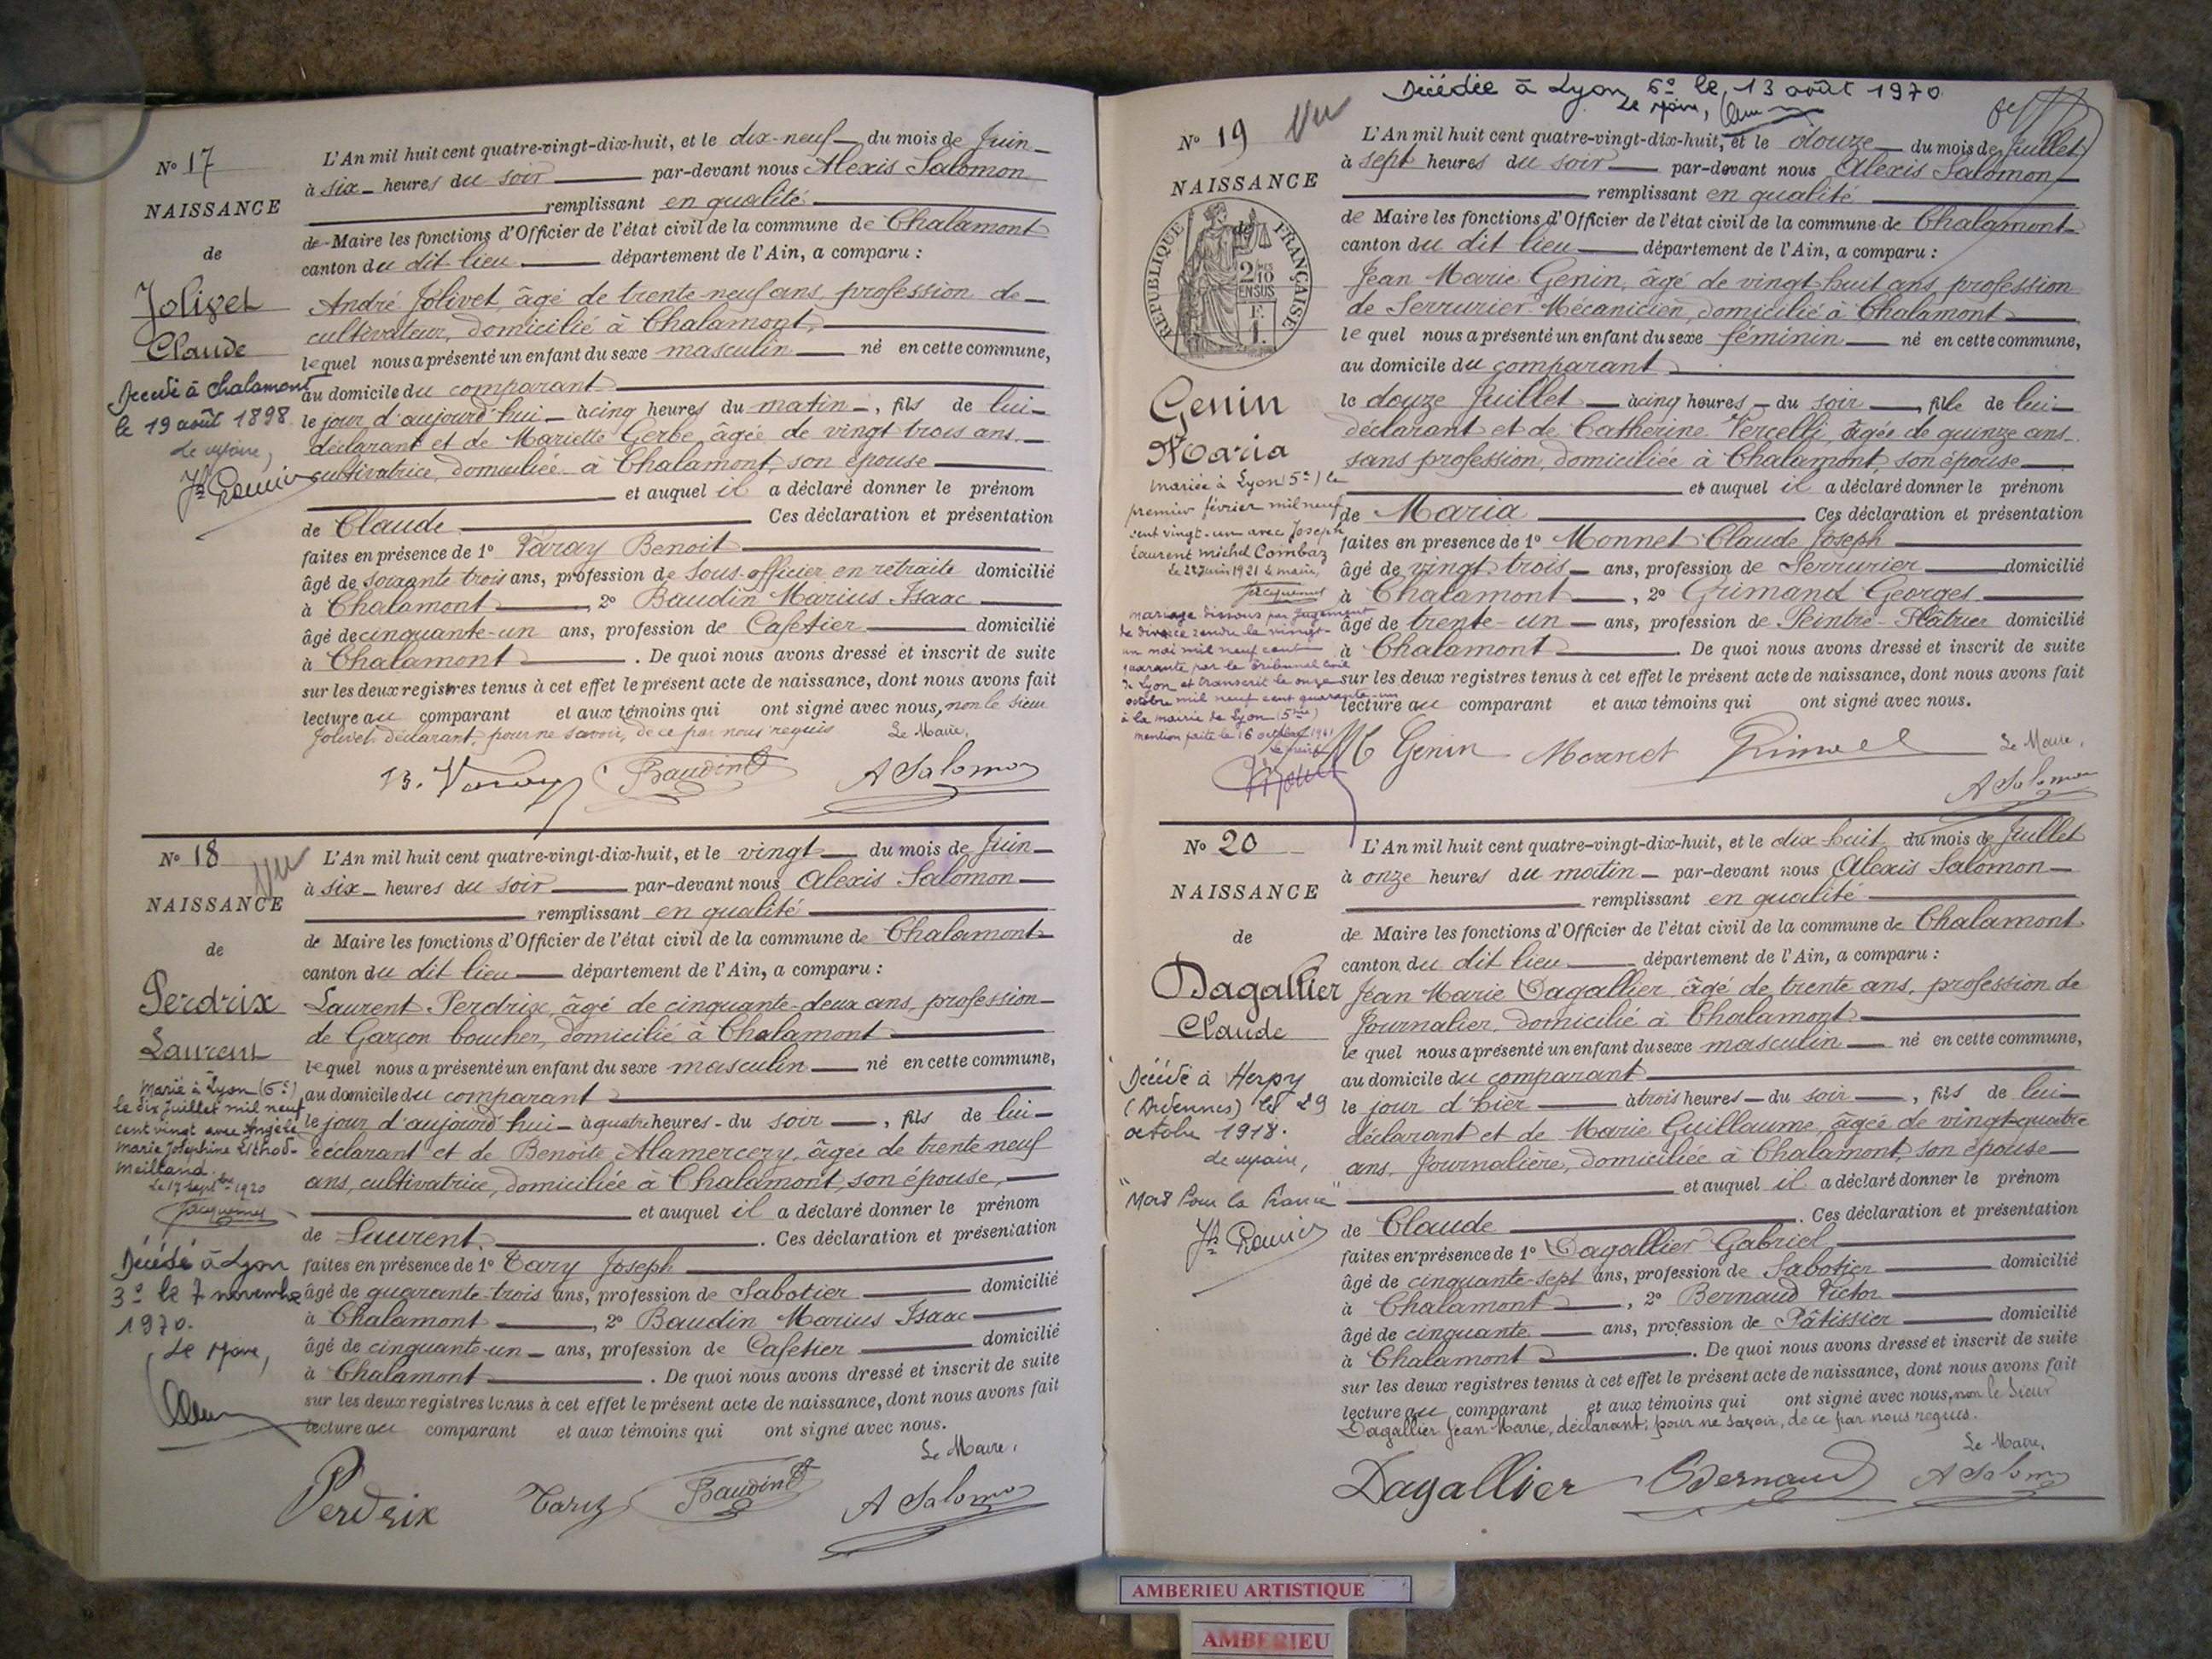 N° 17
NAISSANCE
de
Jolivet
Claude
Décédé à Chalamont
le 19 août 1898
Le Maire,
L'An mil huit cent quatre-vingt-dix-huit, et le dix-neuf du mois de Juin
à six heures du soir par-devant nous Alexis Salomon
remplissant en qualité
de Maire les fonctions d'Officier de l'état civil de la commune de Chalamont
canton du dit lieu département de l'Ain, a comparu :
André Jolivet, âgé de trente neuf ans, profession de
cultivateur, domicilié à Chalamont,
lequel nous a présenté un enfant du sexe masculin né en cette commune,
au domicile du comparant
le jour d'aujourd'hui à cinq heures du matin, fils de lui
déclarant et de Mariette Gerbe, âgée de vingt trois ans,
cultivatrice, domiciliée à Chalamont, son épouse
et auquel il a déclaré donner le prénom
de Claude Ces déclaration et présentation
faites en présence de 1° Varay Benoit
âgé de soixante trois ans, profession de Sous-officier en retraite domicilié
à Chalamont, 2° Baudin Marius Isaac
âgé de cinquante-un ans, profession de Cafetier domicilié
à Chalamont. De quoi nous avons dressé et inscrit de suite
sur les deux registres tenus à cet effet le présent acte de naissance, dont nous avons fait
lecture au comparant et aux témoins qui ont signé avec nous, non le sieur
Jolivet, déclarant, pour ne savoir, de ce par nous requis Le Maire,
B. Varay Baudin A Salomon
N° 18
Vu
NAISSANCE
de
Perdrix
Laurent
Marié à Lyon (6e)
le dix Juillet mil neuf
cent vingt avec Angèle
Marie Joséphine
Meilland.
Le 17 septbre 1920
Jacquemet
Décédé à Lyon
3e le 7 novembre
1970.
Le Maire,
L'An mil huit cent quatre-vingt-dix-huit, et le vingt du mois de Juin
à six heures du soir par-devant nous Alexis Salomon
remplissant en qualité
de Maire les fonctions d'Officier de l'état civil de la commune de Chalamont
canton du dit lieu département de l'Ain, a comparu :
Laurent Perdrix, âgé de cinquante-deux ans, profession
de Garçon boucher, domicilié à Chalamont
lequel nous a présenté un enfant du sexe masculin né en cette commune,
au domicile du comparant
le jour d'aujourd'hui à quatre heures du soir, fils de lui
déclarant et de Benoite Alamercery, âgée de trente neuf
ans, cultivatrice, domiciliée à Chalamont, son épouse,
et auquel il a déclaré donner le prénom
de Laurent. Ces déclaration et présentation
faites en présence de 1° Tary Joseph
âgé de quarante-trois ans, profession de Sabotier domicilié
à Chalamont, 2° Baudin Marius Isaac
âgé de cinquante-un ans, profession de Cafetier domicilié
à Chalamont. De quoi nous avons dressé et inscrit de suite
sur les deux registres tenus à cet effet le présent acte de naissance, dont nous avons fait
lecture au comparant et aux témoins qui ont signé avec nous.
Le Maire,
Perdrix Tary Baudin A Salomon
Décédée à Lyon 6e le 13 août 1970
Le Maire,
N° 19
Vu
NAISSANCE
de
RÉPUBLIQUE FRANÇAISE
2/10
EN SUS
F.
1.
Genin
Maria
Mariée à Lyon (5e) le
premier février mil neuf
cent vingt-un avec Joseph
Laurent Michel Combaz
Le 28 Juin 1921 Le maire,
Jacquemet
Mariage dissous par Jugement
de divorce rendu le vingt-
un mai mil neuf cent
quarante par le tribunal civil
de Lyon et transcrit le onze
octobre mil neuf cent quarante-un
à la mairie de Lyon (5me)
Mention faite le 16 octobre 1941
Le Maire
L'An mil huit cent quatre-vingt-dix-huit, et le douze du mois de Juillet
à sept heures du soir par-devant nous Alexis Salomon
remplissant en qualité
de Maire les fonctions d'Officier de l'état civil de la commune de Chalamont
canton du dit lieu département de l'Ain, a comparu :
Jean Marie Genin, âgé de vingt huit ans, profession
de Serrurier-Mécanicien, domicilié à Chalamont
lequel nous a présenté un enfant du sexe féminin né en cette commune,
au domicile du comparant
le douze Juillet à cinq heures du soir, fille de lui
déclarant et de Catherine Vercelli, âgée de quinze ans
sans profession, domiciliée à Chalamont, son épouse
et auquel il a déclaré donner le prénom
de Maria Ces déclaration et présentation
faites en présence de 1° Monnet Claude Joseph
âgé de vingt trois ans, profession de Serrurier domicilié
à Chalamont, 2° Grimand Georges
âgé de trente-un ans, profession de Peintre-Plâtrier domicilié
à Chalamont. De quoi nous avons dressé et inscrit de suite
sur les deux registres tenus à cet effet le présent acte de naissance, dont nous avons fait
lecture au comparant et aux témoins qui ont signé avec nous.
Genin Monnet Le Maire,
A Salomon
N° 20
NAISSANCE
de
Dagallier
Claude
Décédé à Herpy
(Ardennes) le 29
octobre 1918.
Le Maire,
"Mort Pour la France"
L'An mil huit cent quatre-vingt-dix-huit, et le dix huit du mois de Juillet
à onze heures du matin par-devant nous Alexis Salomon
remplissant en qualité
de Maire les fonctions d'Officier de l'état civil de la commune de Chalamont
canton du dit lieu département de l'Ain, a comparu :
Jean Marie Dagallier, âgé de trente ans, profession de
Journalier, domicilié à Chalamont
lequel nous a présenté un enfant du sexe masculin né en cette commune,
au domicile du comparant
le jour d'hier à trois heures du soir, fils de lui
déclarant et de Marie Guillaume, âgée de vingt-quatre
ans, Journalière, domiciliée à Chalamont, son épouse
et auquel il a déclaré donner le prénom
de Claude. Ces déclaration et présentation
faites en présence de 1° Dagallier Gabriel
âgé de cinquante-sept ans, profession de Sabotier domicilié
à Chalamont, 2° Bernaud Victor
âgé de cinquante ans, profession de Pâtissier domicilié
à Chalamont. De quoi nous avons dressé et inscrit de suite
sur les deux registres tenus à cet effet le présent acte de naissance, dont nous avons fait
lecture au comparant et aux témoins qui ont signé avec nous, non le Sieur
Dagallier Jean Marie, déclarant, pour ne savoir, de ce par nous requis.
Le Maire,
Dagallier Bernaud A Salomon
AMBERIEU ARTISTIQUE
AMBERIEU